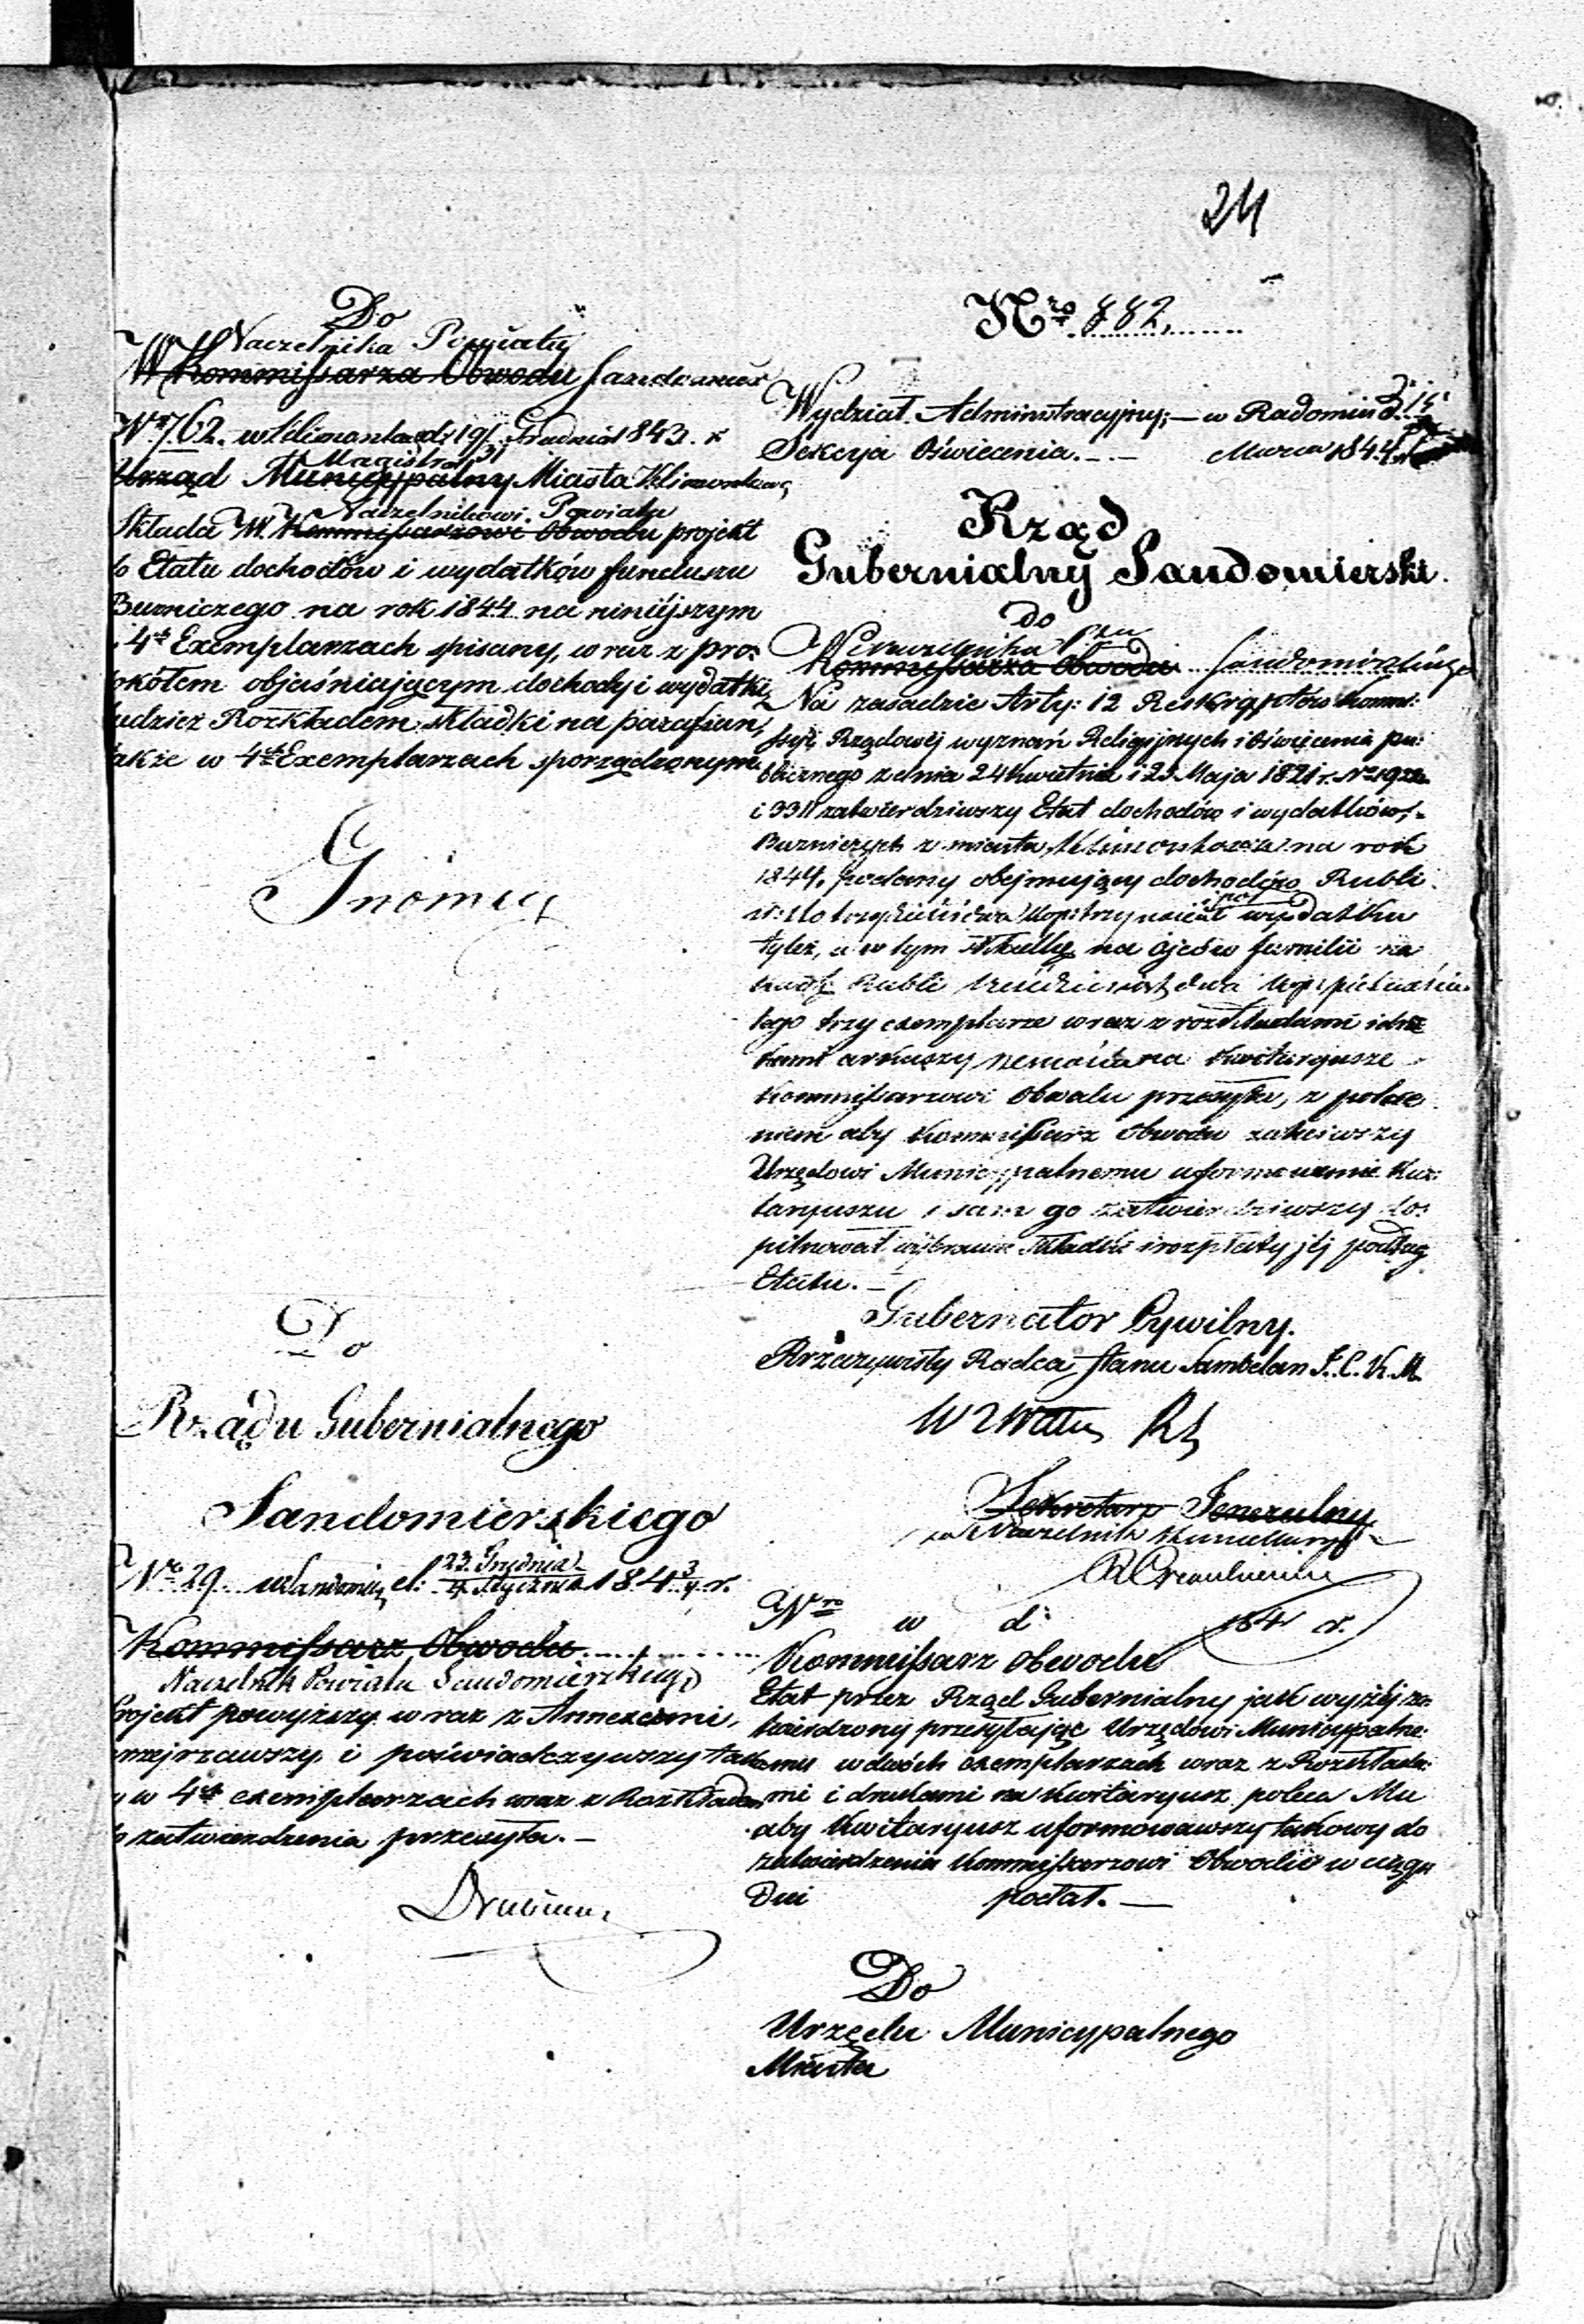 24
Do
Naczelnika Powiatu
W Kommissarza Obwodu Sandomier
Nr 762. w Klimontowie d: 19/31 Grudnia 1843. r
Magistrat
Urząd Municypalny Miasta Klimontowa
Naczelnikowi Powiatu
Składa W. Kommissarzowi Obwodu projekt
do Etatu dochodów i wydatków funduszu
Bużniczego na rok 1844 na niniejszym
4ch Exemplarzach spisany, wraz z pro:
tokółem objaśniającym dochody i wydatki,
tudzież Rozkładem składki na parafian,
także w 4ch Exemplarzach sporządzonym.
Do
Rządu Gubernialnego
Sandomierskiego
Nr 29. w Sandomierzu d: 23. Grudnia / 4. Stycznia 184 3/4 r.
Kommissarz Obwodu
Naczelnik Powiatu Sandomierskiego
Projekt powyższy wraz z Annexami,
przejrzawszy i poświadczywszy takowy
w 4ch exemplarzach wraz z Rozkładem
do zatwierdzenia przesyła. —
Nro 882.
Wydział Administracyjny; — w Radomiu d. 3/15
Sekcya Oświecenia. — Marca 1844 r.
Rząd
Gubernialny Sandomierski.
do
Naczelnika Ptu
Kommissarza Obwodu Sandomierskiego
Na zasadzie Arty: 12 Reskryptów Komm:
syi Rządowéj wyznań Religijnych i Oświecenia pu:
blicznego z dnia 24 Kwietnia i 23 Maja 1821 r. Nr
i 3311 zatwierdziwszy Etat dochodów i wydatków
Bużniczych z miasta Klimontowa na rok
1844. podany obejmujący dochodów Rubli
sr: sto trzydzieści dwa kop: trzynaście i pół wydatku
tyleż, a w tym składkę na ojców familii na
kwotę Rubli sześćdziesiąt dwa kop: piętnaście
tego trzy exemplarze wraz z rozkładami i dru
kami arkuszy na kwitaryusze
Kommissarzowi Obwodu przesyła, z polece
niem aby Kommissarz Obwodu zaleciwszy
Urzędowi Municypalnemu uformowanie kwi:
taryuszu i sam go zatwierdziwszy do:
pilnował wybrania składki i rozpłaty jéj podług
Etatu. —
Gubernator Cywilny.
Rzeczywisty Radca Stanu Szambelan J. C. K. M.
Sekretarz Jeneralny
za Naczelnik Kancellaryi
Nro w d: 184 r.
Kommissarz Obwodu
Etat przez Rząd Gubernialny jak wyżéj za:
twierdzony przesyłając Urzędowi Municypalne:
mu w dwóch exemplarzach wraz z Rozkłada:
mi i drukami na kwitaryusz poleca Mu
aby kwitaryusz uformowawszy takowy do
zatwierdzenia Kommissarzowi Obwodu w ciągu
Dni podał. —
Do
Urzędu Municypalnego
Miasta